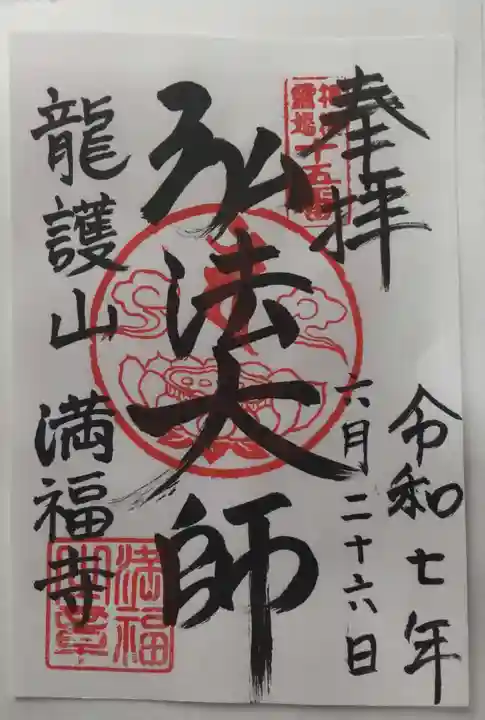 奉拝
令和七年
六月二十六日
弘法大師
龍護山 満福寺
霊場
十五
満福